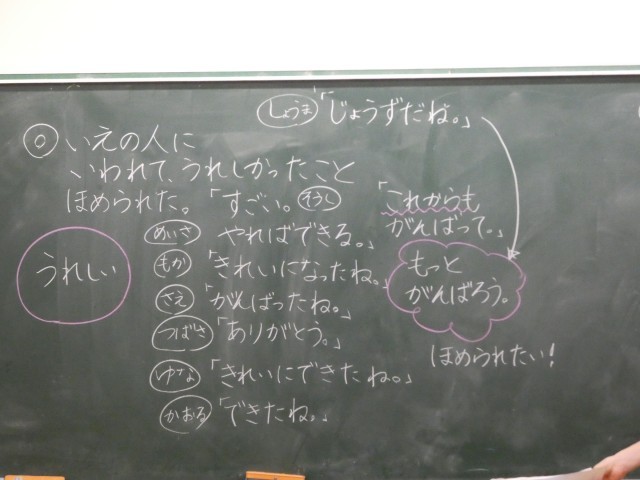 しょうま 「じょうずだね。」
◎ いえの人に
いわれて、うれしかったこと
ほめられた。「すごい。 そうし
めいさ やればできる。」
「これからも
がんばって。」
うれしい
もか 「きれいになったね。」
さえ 「がんばったね。」
つばさ 「ありがとう。」
ゆな 「きれいにできたね。」
かおる 「できたね。」
もっと
がんばろう。
ほめられたい!